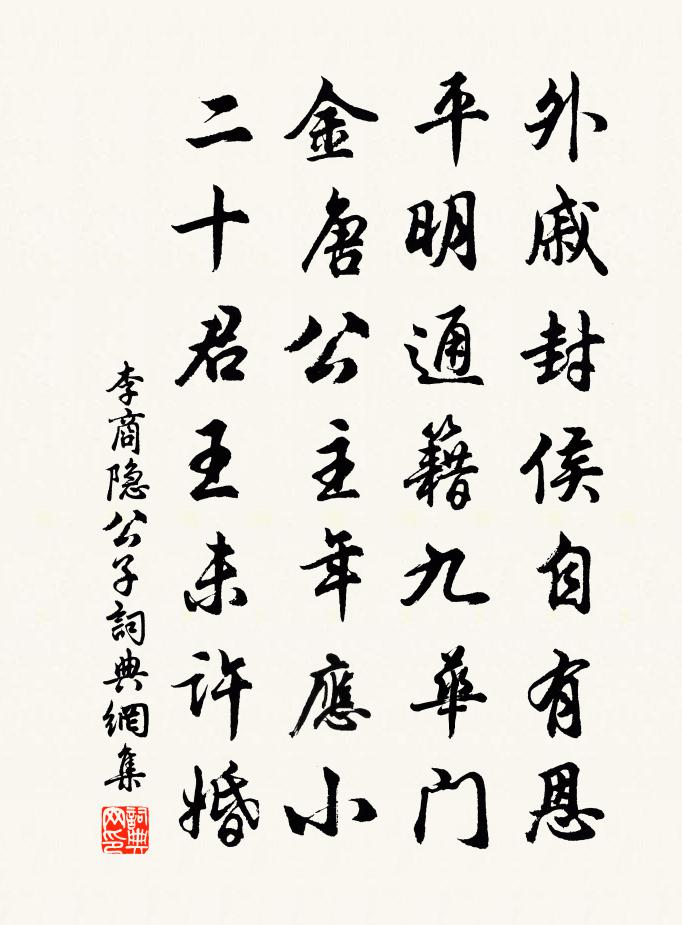 外戚封侯自有恩
平明通籍九華门
金唐公主年應小
二十君王未许婚
李商隐公子詞典網集
詞典网印